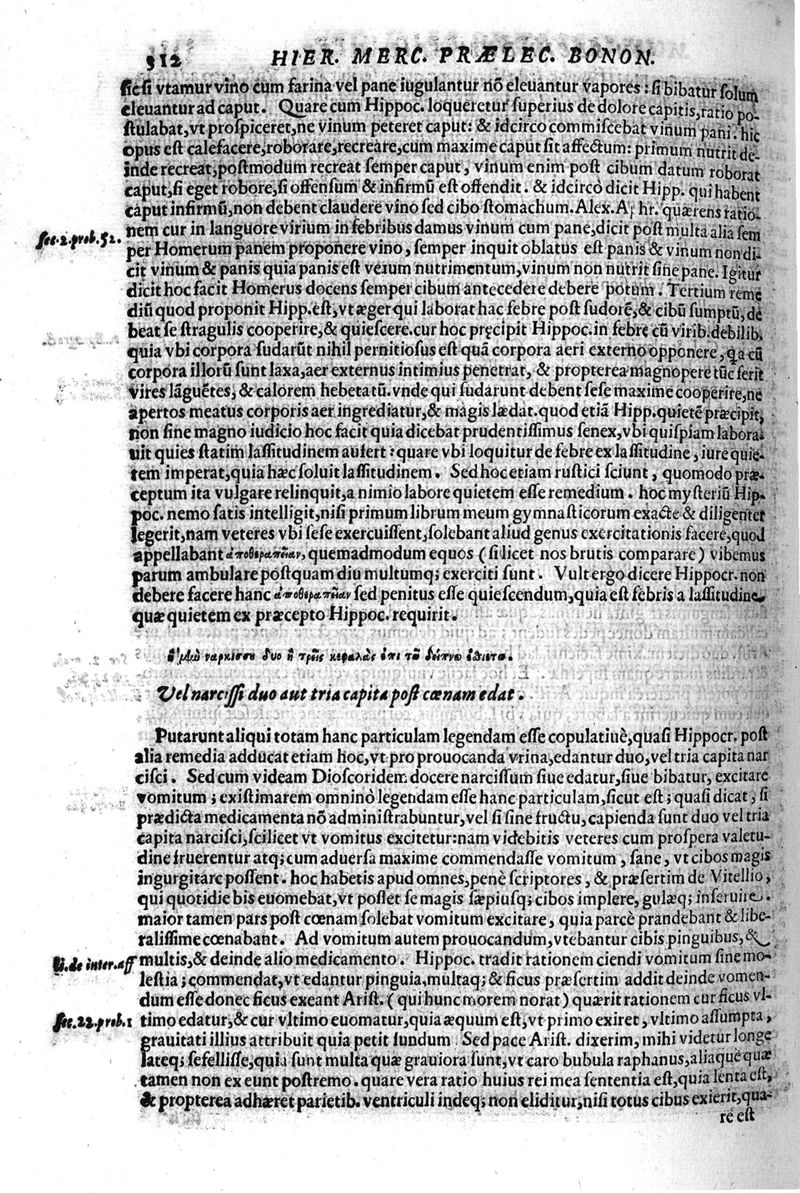 512 HIER. MERC. PRÆLEC. BONON.
sicsi vtamur vino cum farina vel pane iugulantur nõ eleuantur vapores : si bibatur solum
eleuantur ad caput. Quare cum Hippoc. loqueretur superius de dolore capitis, ratio po-
stulabat, vt prospiceret, ne vinum peteret caput: & idcirco commiscebat vinum pani. hic
opus est calefacere, roborare, recreare, cum maxime caput sit affectum: primum nutrit de-
inde recreat, postmodum recreat semper caput, vinum enim post cibum datum roborat
caput, si eget robore, si offensum & infirmũ est offendit. & idcircò dicit Hipp. qui habent
caput infirmũ, non debent claudere vino sed cibo stomachum. Alex. Aphr. quærens ratio-
nem cur in languore virium in febribus damus vinum cum pane, dicit post multa alia sem
sec. 2. prob. 52.
per Homerum panem proponere vino, semper inquit oblatus est panis & vinum non di-
cit vinum & panis quia panis est verum nutrimentum, vinum non nutrit sine pane. Igitur
dicit hoc facit Homerus docens semper cibum antecedere debere potum. Tertium reme
diũ quod proponit Hipp. est, vt æger qui laborat hac febre post sudorẽ, & cibũ sumptũ, de
beat se stragulis cooperire, & quiescere. cur hoc pręcipit Hippoc. in febre cũ virib. debilib.
quia vbi corpora sudarũt nihil pernitiosus est quã corpora aeri externo opponere, qa cũ
corpora illorũ sunt laxa, aer externus intimius penetrat, & propterea magnopere tũc ferit
vires lãguẽtes, & calorem hebetatũ. vnde qui sudarunt debent sese maxime cooperire, ne
apertos meatus corporis aer ingrediatur, & magis lædat. quod etiã Hipp. quietẽ præcipit,
non sine magno iudicio hoc facit quia dicebat prudentissimus senex, vbi quispiam labora-
uit quies statim lassitudinem aufert : quare vbi loquitur de febre ex lassitudine, iure quie-
tem imperat, quia hæc soluit lassitudinem. Sed hoc etiam rustici sciunt, quomodo præ-
ceptum ita vulgare relinquit, a nimio labore quietem esse remedium. hoc mysteriũ Hip-
poc. nemo satis intelligit, nisi primum librum meum gymnasticorum exacte & diligenter
legerit, nam veteres vbi sese exercuissent, solebant aliud genus exercitationis facere, quod
appellabant ἀποθεραπείαν, quemadmodum equos (si licet nos brutis comparare) vibemus
parum ambulare postquam diu multumq; exerciti sunt. Vult ergo dicere Hippocr. non
debere facere hanc ἀποθεραπείαν sed penitus esse quiescendum, quia est febris a lassitudine
quæ quietem ex præcepto Hippoc. requirit.
ναρκίσσου δυο ἢ τρεῖς κεφαλὰς ἐπι τῷ δείπνῳ
Vel narcissi duo aut tria capita post cœnam edat.
Putarunt aliqui totam hanc particulam legendam esse copulatiuè, quasi Hippocr. post
alia remedia adducat etiam hoc, vt pro prouocanda vrina, edantur duo, vel tria capita nar
cisci. Sed cum videam Dioscoridem docere narcissum siue edatur, siue bibatur, excitare
vomitum ; existimarem omninò legendam esse hanc particulam, sicut est ; quasi dicat, si
prædicta medicamenta nõ administrabuntur, vel si sine fructu, capienda sunt duo vel tria
capita narcisci, scilicet vt vomitus excitetur: nam videbitis veteres cum prospera valetu-
dine fruerentur atq; cum aduersa maxime commendasse vomitum, sane, vt cibos magis
ingurgitare possent. hoc habetis apud omnes, penè scriptores, & præsertim de Vitellio,
qui quotidie bis euomebat, vt posset se magis sæpiusq; cibos implere, gulæq; inseruire.
maior tamen pars post cœnam solebat vomitum excitare, quia parcè prandebant & libe-
ralissime cœnabant. Ad vomitum autem prouocandum, vtebantur cibis pinguibus, &
li. de inter. aff
multis, & deinde alio medicamento. Hippoc. tradit rationem ciendi vomitum sine mo-
lestia ; commendat, vt edantur pinguia, multaq; & ficus præsertim addit deinde vomen-
dum esse donec ficus exeant Arist. (qui hunc morem norat) quærit rationem cur ficus vl-
sec. 22. prob. 1
timo edatur, & cur vltimo euomatur, quia æquum est, vt primo exiret, vltimo assumpta,
grauitati illius attribuit quia petit fundum Sed pace Arist. dixerim, mihi videtur longe
lateq; sefellisse, quia sunt multa quæ grauiora sunt, vt caro bubula raphanus, aliaque quæ
tamen non exeunt postremo. quare vera ratio huius rei mea sententia est, quia lenta est,
& propterea adhæret parietib. ventriculi indeq; non eliditur, nisi totus cibus exierit, qua-
re est